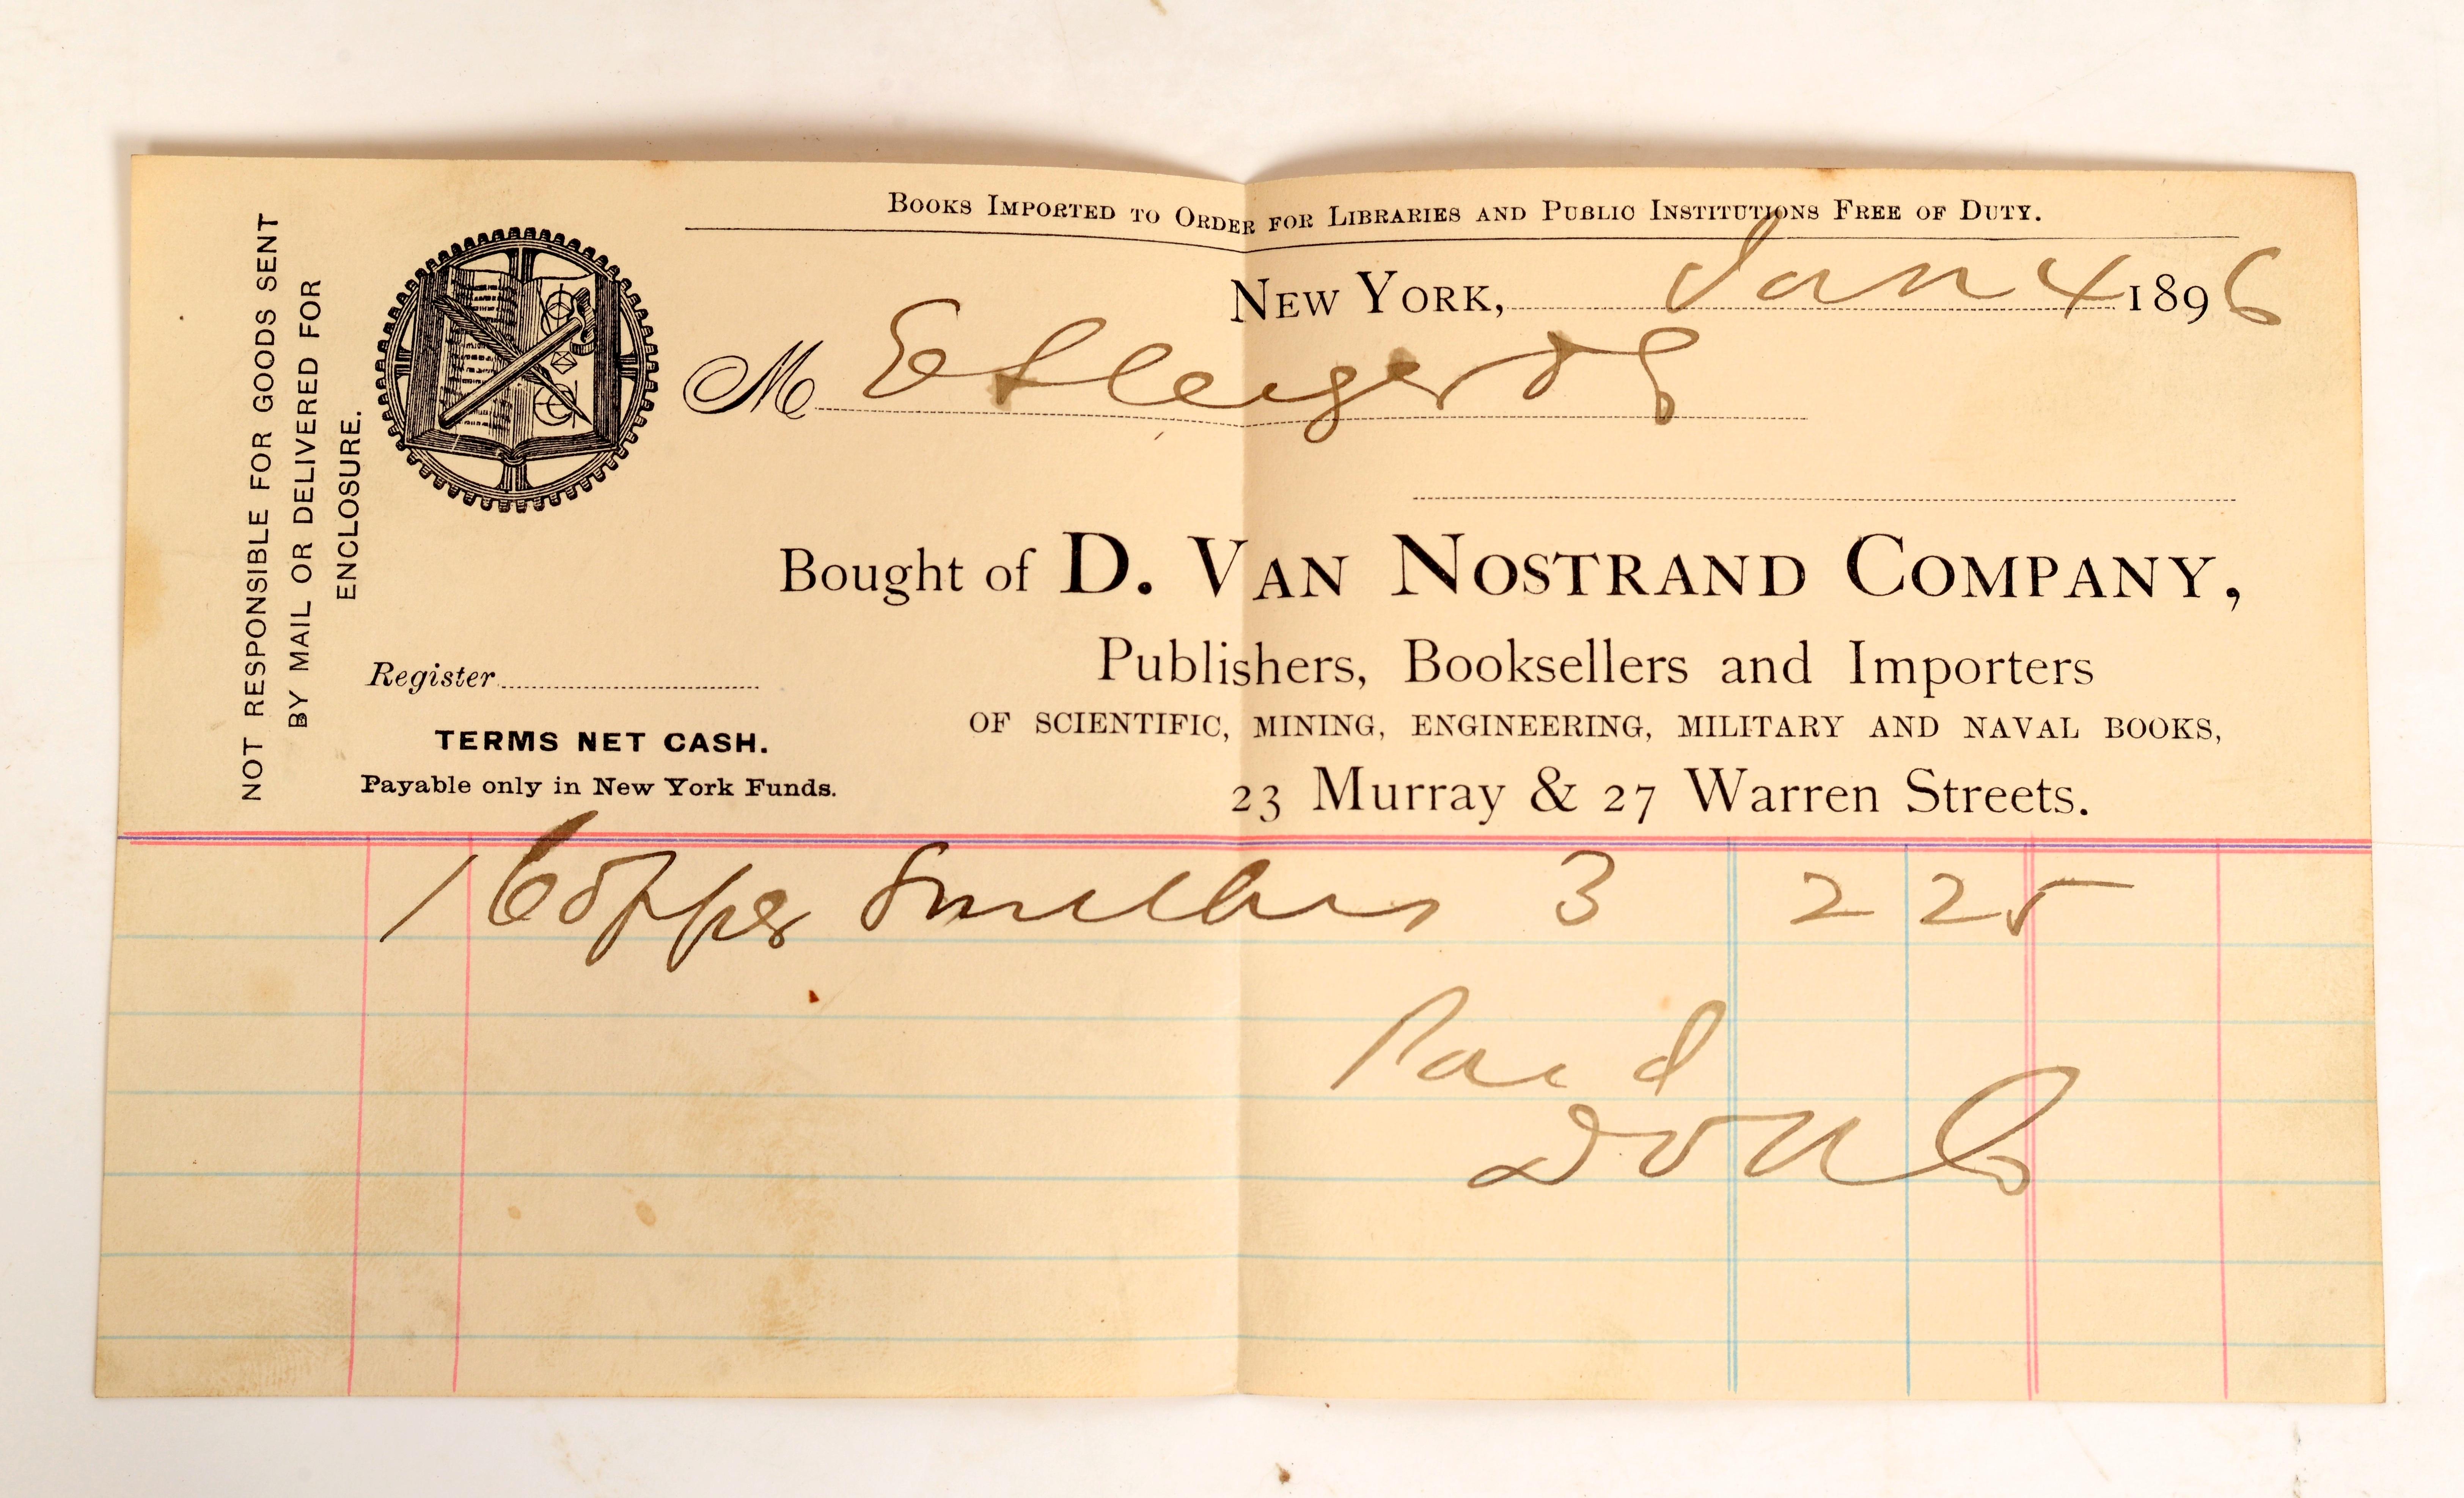 BOOKS IMPORTED TO ORDER FOR LIBRARIES AND PUBLIC INSTITUTIONS FREE OF DUTY.
NOT RESPONSIBLE FOR GOODS SENT
BY MAIL OR DELIVERED FOR
ENCLOSURE.
NEW YORK, Jan 4 1896
M
Bought of D. VAN NOSTRAND COMPANY,
Publishers, Booksellers and Importers
OF SCIENTIFIC, MINING, ENGINEERING, MILITARY AND NAVAL BOOKS,
23 Murray & 27 Warren Streets.
Register
TERMS NET CASH.
Payable only in New York Funds.
1 Copper 3 2 25
Paid